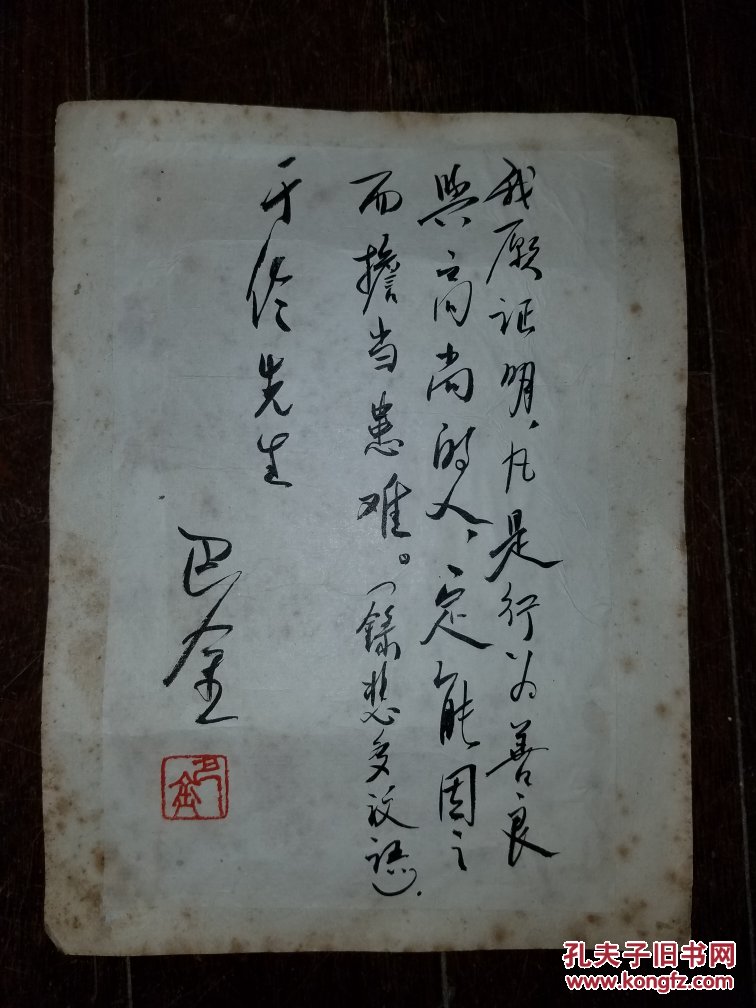 我愿证明，凡是行为善良
與高尚的人，一定能因之
而擔当患难。（錄悲多汶语）.
于伶先生
巴金
巴金
孔夫子旧书网
www.kongfz.com